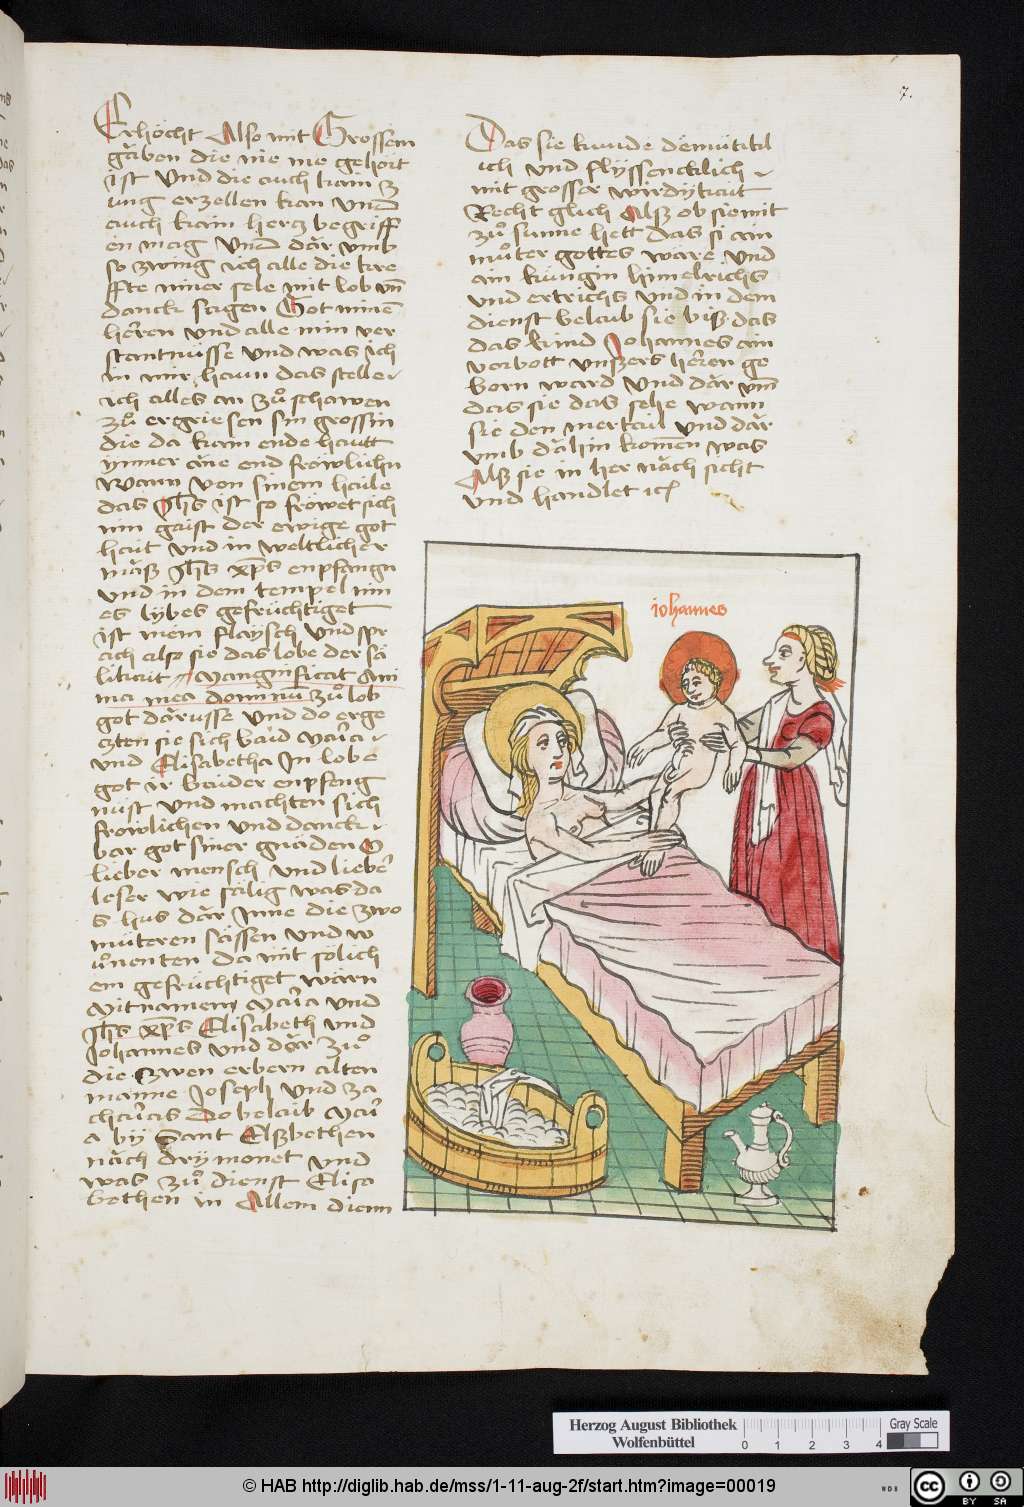 7.
Erhöcht Also mit Grossem
gäben die nie me gehört
ist Und die auch kain z
ung erzellen kan Und
auch kain hercz begriff
en mag Und där vmb
so zwing ich alle die kre
ffte miner sele mit lob vn̄
danck sagen Got minē
herren und alle min ver
stantnüsse Und was ich
in mir haun das stelle
ich alles an zuͦ schawen
zuͦ ergriesen sin grossin
die da kain ende hautt
ÿmmer āne end fröwlühn
Wann von sinem haile
das Jh̄s ist so fröwet sich
min gaist der ewige got
haut Und in weltlicher
mäß Jh̄s xp̄s enpfangn
Und in dem tempel min
es lÿbes gefrüchtiget
ist mem flaÿsch Und spr
ach also sie das lobe der sä
likait Mangnificat Ani
ma mea dominū zuͦ lob
got därusse Und do erge
czten sie sich baid Maria
und Elisabetha In lobe
got ir baider enpfeng
nust Und machten sich
fröwlichen Und danck
bar got siner gnäden O
lieber mensch Und lieber
leser wie sälig was da
s hus där Inne die zwo
müteren sässen Und w
uͦnenten da mit sölich
em gefrüchtiget wärn
Mit namen Maria Und
Jh̄s xp̄s Elisabeth Und
Johannes Und där zuͦ
die zwen erbern alten
manne Joseph Und za
charias Do belaib Mari
a bÿ Sant Elßbethen
näch drÿ monet Und
was zuͦ dienst Elisa
bethen in Allem dienn
Das sie kunde demütikl
ich Und flÿssencklich
mit grosser wirdÿkait
Recht glich Alß ob sie mit
zuͦ sinne hett das si ain
muͦter gottes wäre Und
ain küngin himelrichs
Und ertrichs Und in dem
dienst belaib sie biß das
das kind Johannes ain
vorbott Unßers herren ge
born ward Und där vm̄
das sie das sehe wann
sie den mertail Und där
vmb dähin komen was
Alß sie in her näch sicht
Und handlet ich
iohannes
Herzog August Bibliothek
Wolfenbüttel
0 1 2 3 4
Gray Scale
© HAB http://diglib.hab.de/mss/1-11-aug-2f/start.htm?image=00019
WDB
cc
BY SA